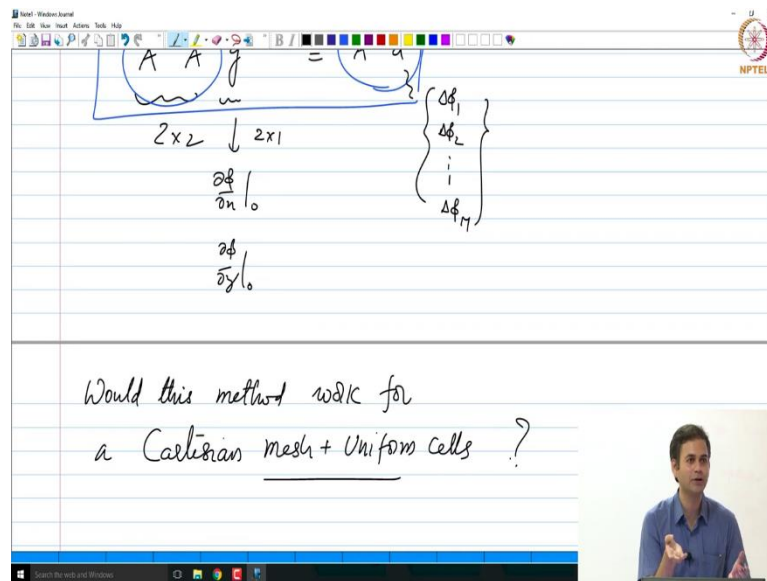 Note1 - Windows Journal
File Edit View Insert Actions Tools Help
B I
NPTEL
A A y =
2x2 ↓ 2x1
∂ϕ/∂x|₀
∂ϕ/∂y|₀
{Δϕ₁
Δϕ₂
⋮
Δϕ_M}
Would this method work for
a Cartesian mesh + Uniform cells ?
Search the web and Windows